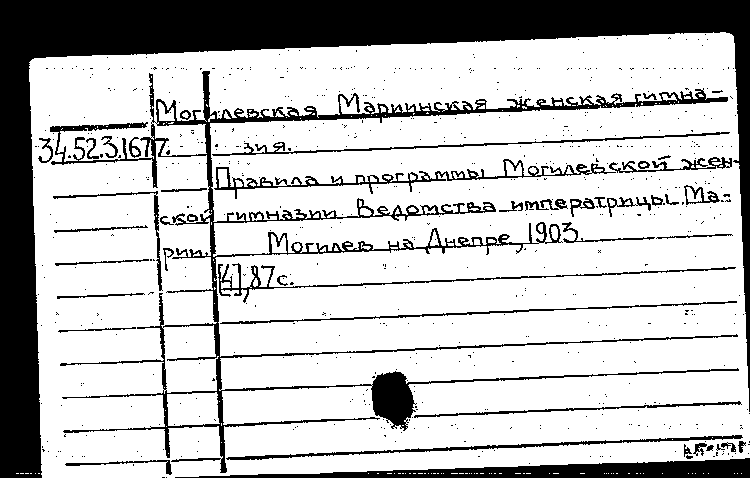 Могилевская Мариинская женская гимна-
34.52.3.1677. зия.
Правила и программы Могилевской жен-
ской гимназии Ведомства императрицы Ма-
рии. Могилев на Днепре, 1903.
[4], 87 с.